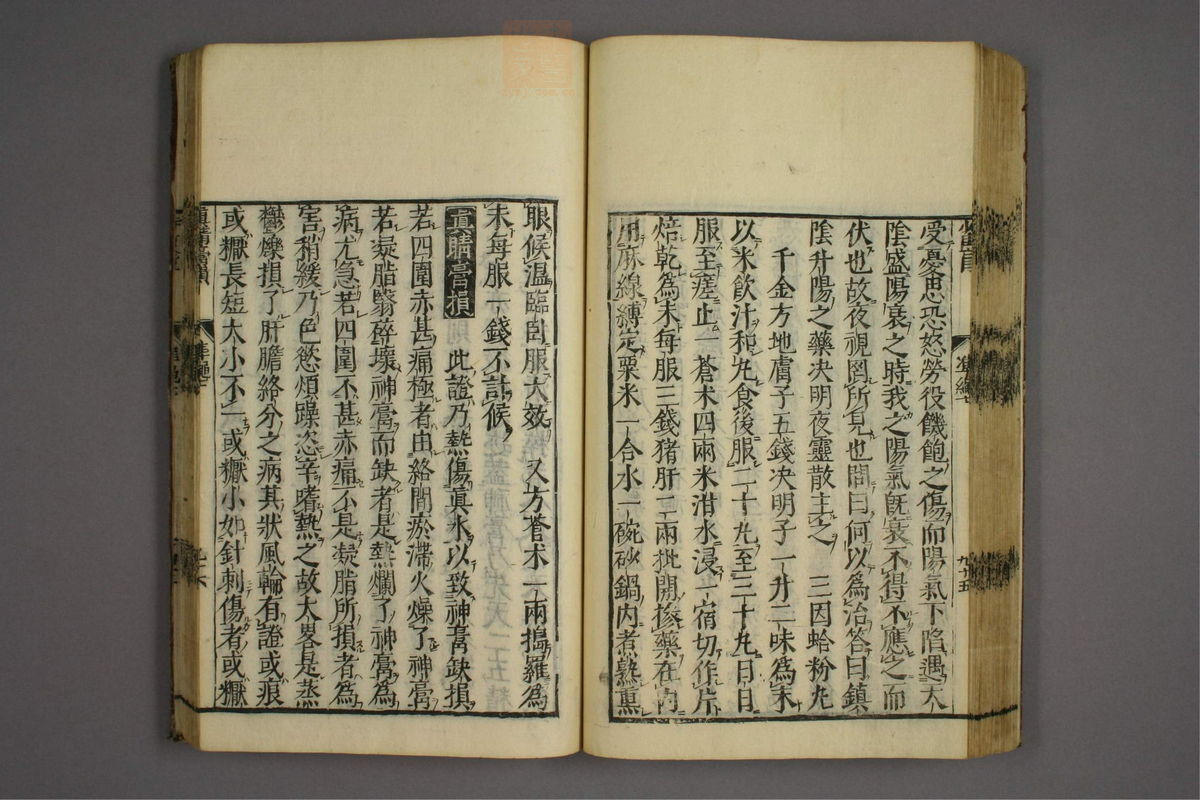 受憂思恐怒勞役饑飽之傷而陽氣下陷遇太
陰盛陽衰之時我之陽氣旣衰不得不應之而
伏也故夜視罔所見也問曰何以爲治答曰鎮
陰升陽之藥决明夜靈散主之
千金方地膚子五錢决明子一升二味爲末
以米飲汁和丸食後服二十丸至三十丸日日
服至瘥止一蒼术四兩米泔水浸一宿切作片
焙乾爲末每服三錢猪肝二兩批開摻藥在內
用麻線縛定粟米一合水一碗砂鍋內煮熟熏
眼候溫臨臥服大效 又方蒼术一兩搗羅爲
末每服一錢不計候
眞睛膏損 此證乃熱傷眞水以致神膏缺損
若四圍赤甚痛極者由絡間瘀滯火燥了神膏
若凝脂翳碎壞神膏而缺者是熱爛了神膏爲
病尤急若四圍不甚赤痛不是凝脂所損者爲
害稍緩乃色慾煩躁恣辛嗜熱之故大畧是蒸
鬱爍損了肝膽絡分之病其狀風輪有證或痕
或䘌長短大小不一或䘌小如針刺傷者或䘌
三因蛤粉丸
準繩
九十五